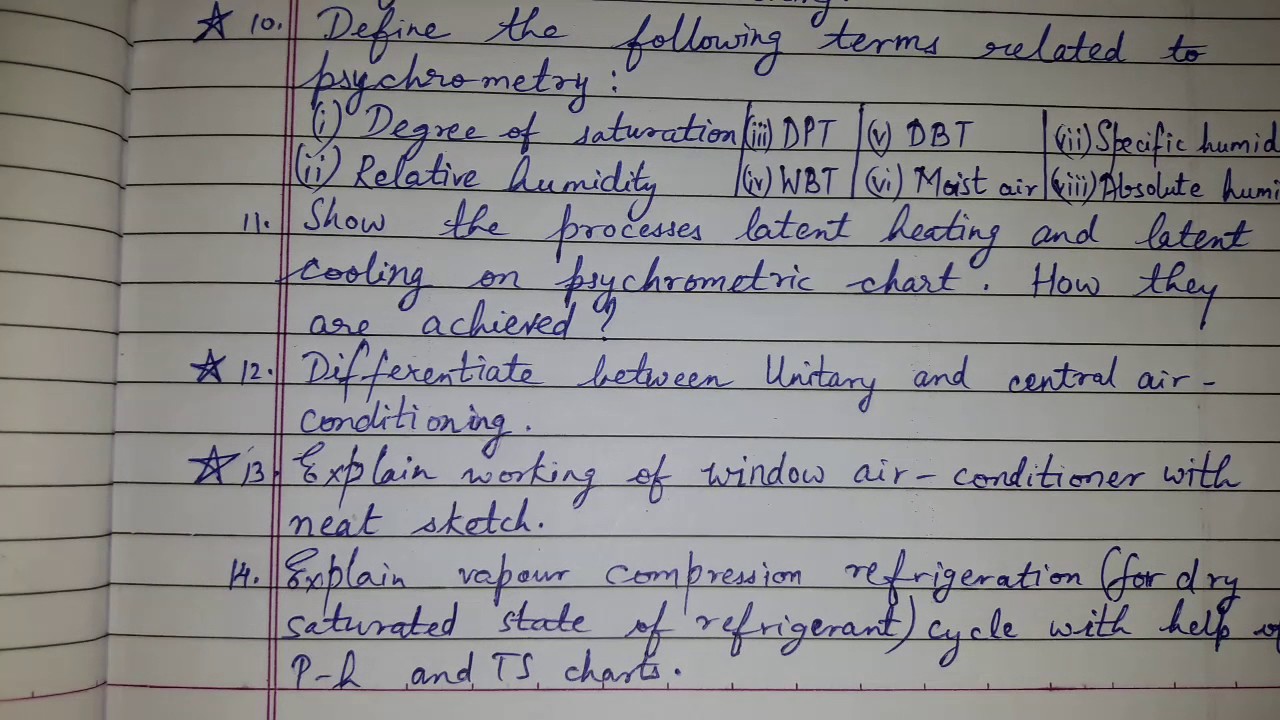 ☆ 10. Define the following terms related to
psychrometry:
(i) Degree of saturation (iii) DPT (v) DBT (vii) Specific humid
(ii) Relative humidity (iv) WBT (vi) Moist air (viii) Absolute humi
11. Show the processes latent heating and latent
cooling on psychrometric chart. How they
are achieved?
☆ 12. Differentiate between Unitary and central air-
conditioning.
☆ 13. Explain working of window air-conditioner with
neat sketch.
14. Explain vapour compression refrigeration (for dry
saturated state of refrigerant) cycle with help of
P-h and TS charts.